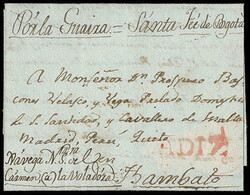 Por la Guaira = Santa Feé de Bogota
A Monseñor Dn Prospero
Velasco, y Vega Prelado Domestico
de S. Santidad, y Cavallero de
Madrid Perú, Quito
CADIZ
Navega N. S. del
Carmen (a) la Voladora Hambato